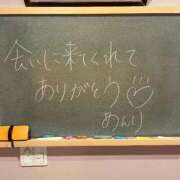 会いに来てくれて
ありがとう♡
あんり